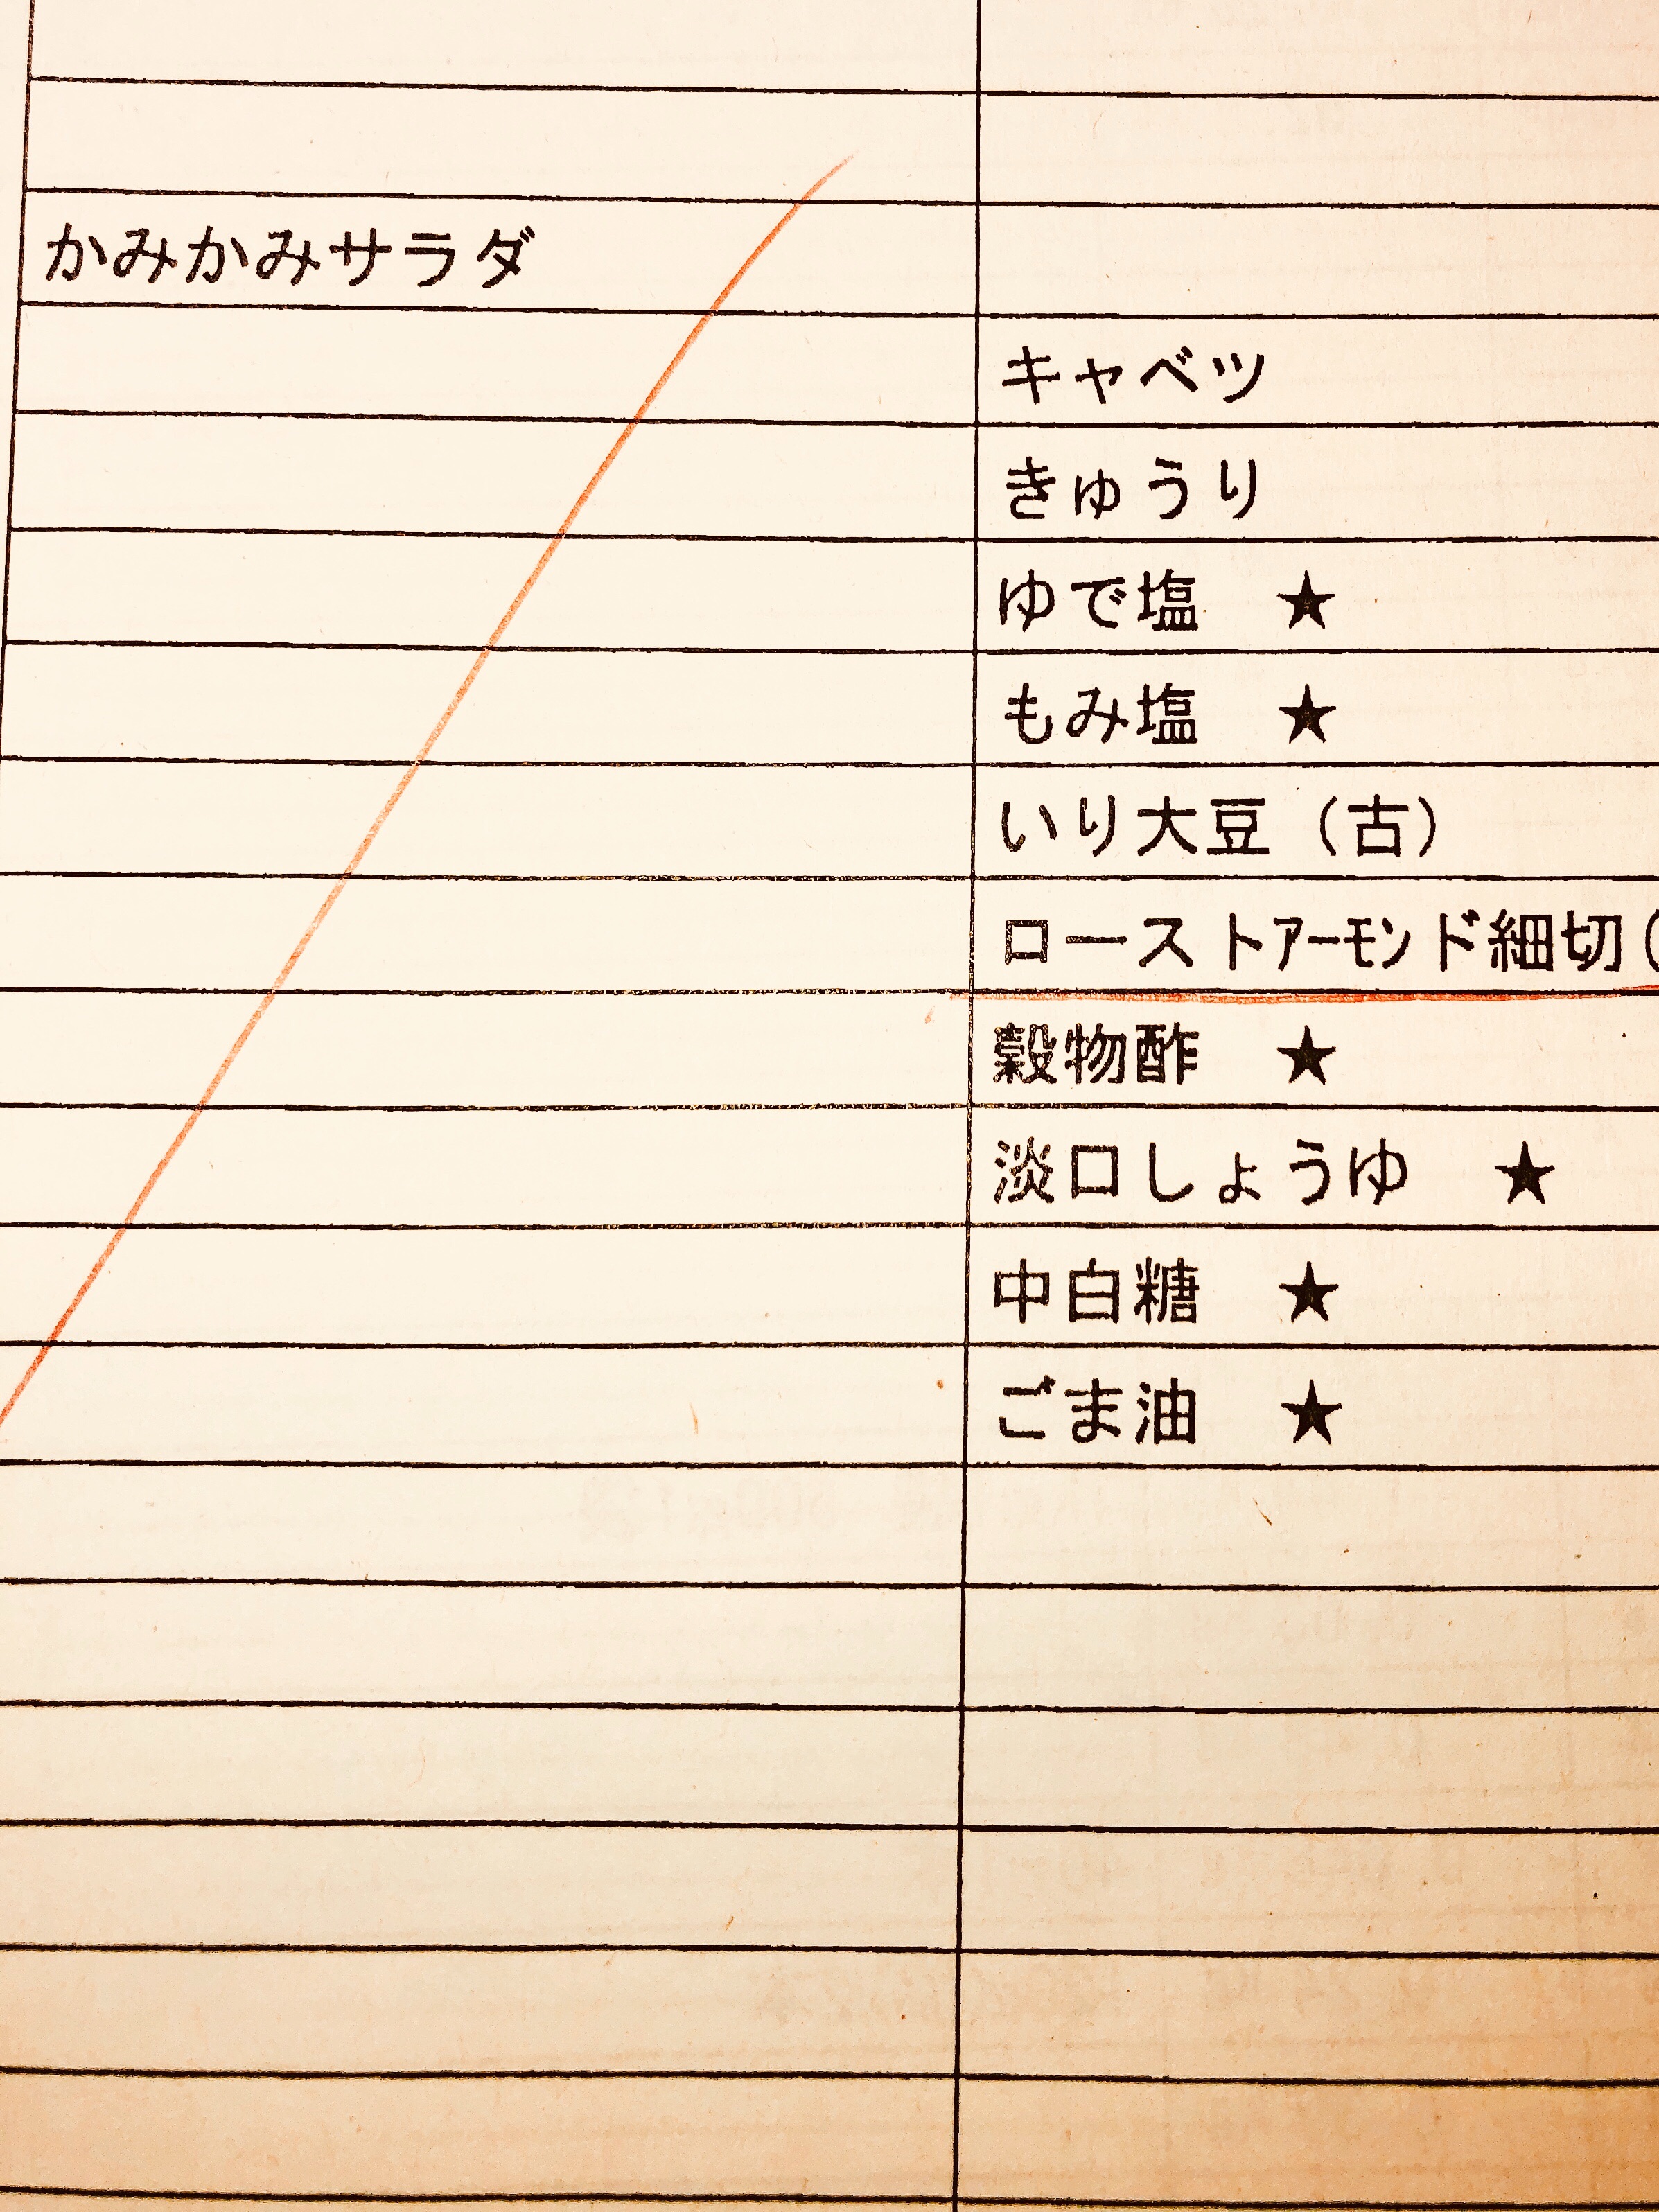 かみかみサラダ
キャベツ
きゅうり
ゆで塩　★
もみ塩　★
いり大豆（古）
ローストｱｰﾓﾝド細切(
穀物酢　★
淡口しょうゆ　★
中白糖　★
ごま油　★